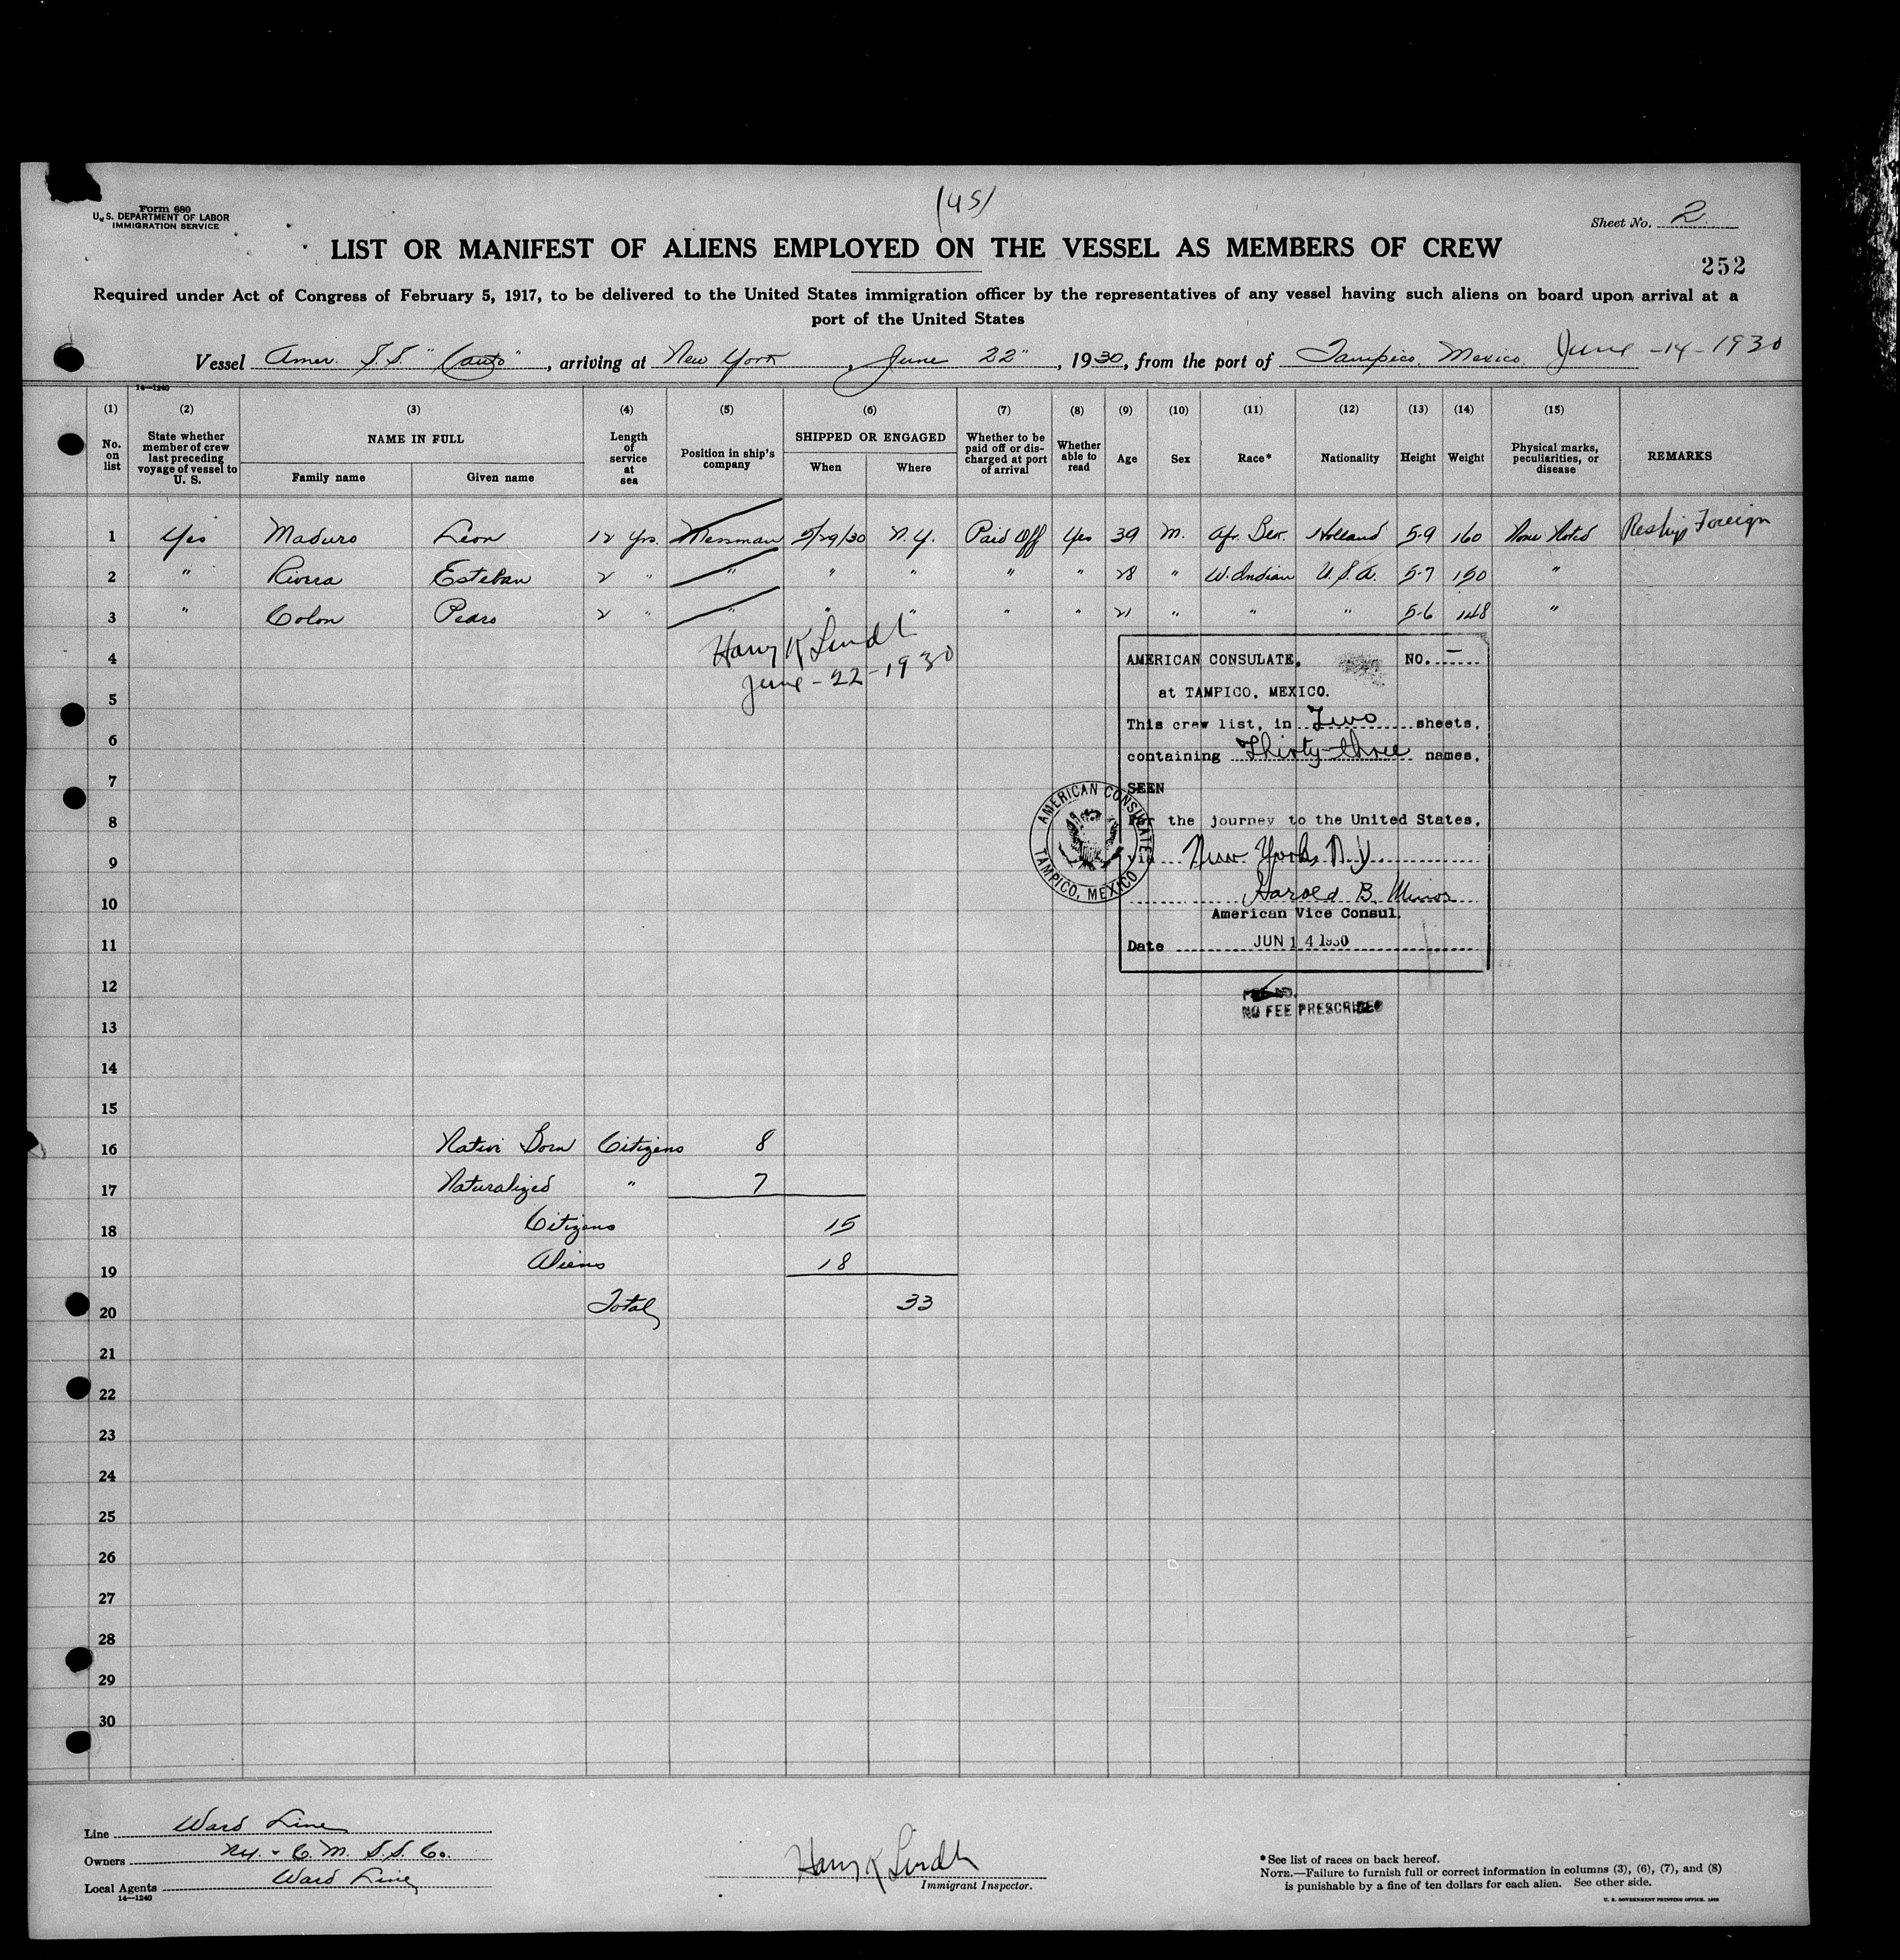 Form 680
U. S. DEPARTMENT OF LABOR
IMMIGRATION SERVICE
(45)
Sheet No. 2
LIST OR MANIFEST OF ALIENS EMPLOYED ON THE VESSEL AS MEMBERS OF CREW
252
Required under Act of Congress of February 5, 1917, to be delivered to the United States immigration officer by the representatives of any vessel having such aliens on board upon arrival at a
port of the United States
Vessel Amer. S.S. "Cauto", arriving at New York, June 22", 1930, from the port of Tampico, Mexico. June -14-1930
14—1240
(1) No. on list
(2) State whether member of crew last preceding voyage of vessel to U. S.
(3) NAME IN FULL Family name Given name
(4) Length of service at sea
(5) Position in ship's company
(6) SHIPPED OR ENGAGED When Where
(7) Whether to be paid off or discharged at port of arrival
(8) Whether able to read
(9) Age
(10) Sex
(11) Race*
(12) Nationality
(13) Height
(14) Weight
(15) Physical marks, peculiarities, or disease
REMARKS
1 Yes Maduro Leon 12 Yrs. Messman 5/29/30 N.Y. Paid Off Yes 39 M. Afr. Holland 5-9 160 None Noted Reship Foreign
2 " Rivera Esteban 2 " " " " " " 28 " W. Indian U.S.A. 5-7 150 "
3 " Colon Pedro 2 " " " " " " 21 " " " 5-6 148 "
Harry K Lindh
June-22-1930
4
5
6
7
8
9
10
11
12
13
14
15
AMERICAN CONSULATE, NO. —
at TAMPICO, MEXICO.
This crew list, in Two sheets,
containing Thirty-three names,
SEEN
For the journey to the United States,
via New York, N.Y.
Harold B. Minor
American Vice Consul.
Date JUN 14 1930
AMERICAN CONSULATE
TAMPICO, MEXICO
NO FEE PRESCRIBED
16 Native Born Citizens 8
17 Naturalized " 7
18 Citizens 15
19 Aliens 18
20 Total 33
21
22
23
24
25
26
27
28
29
30
Line Ward Line
Owners N.Y. & C. M. S.S. Co.
Local Agents Ward Line
14—1240
Harry K Lindh
Immigrant Inspector.
*See list of races on back hereof.
NOTE.—Failure to furnish full or correct information in columns (3), (6), (7), and (8)
is punishable by a fine of ten dollars for each alien. See other side.
U. S. GOVERNMENT PRINTING OFFICE.